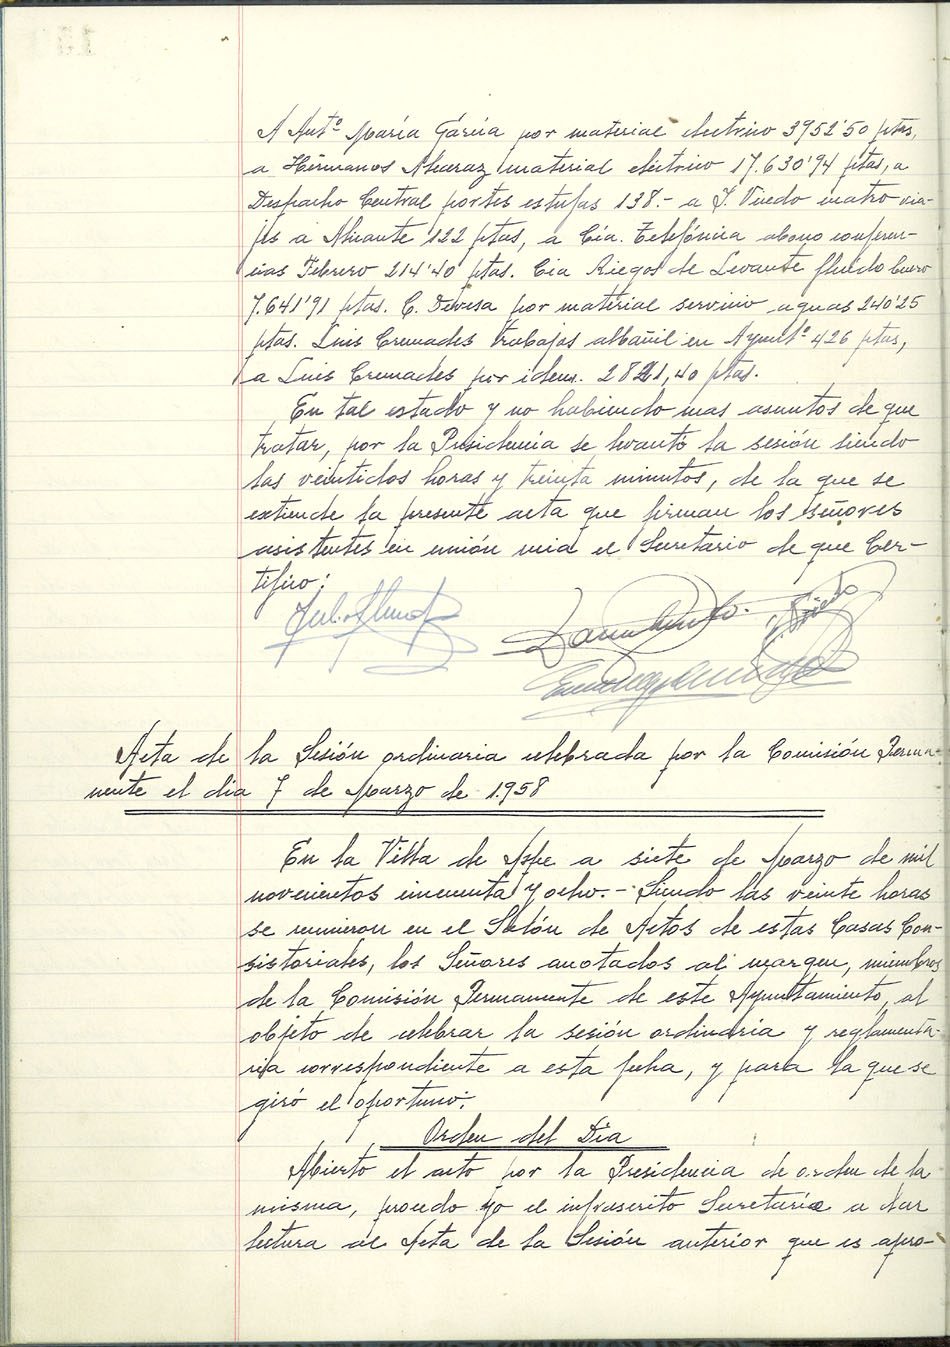 A Antº María García por material electrico 3952'50 ptas,
a Hermanos Alcaraz material electrico 17.630'94 ptas, a
Despacho Central portes estufas 138.- a J. Vicedo cuatro via-
jes a Alicante 122 ptas, a Cía. Telefónica abono conferen-
cias Febrero 214'40 ptas. Cia Riegos de Levante fluido Enero
7.641'91 ptas. C. Devesa por material servicio aguas 240'25
ptas. Luis Cremades trabajos albañil en Ayuntº 426 ptas,
a Luis Cremades por idem. 2821,40 ptas.
En tal estado y no habiendo mas asuntos de que
tratar, por la Presidencia se levantó la sesión siendo
las veintidos horas y treinta minutos, de la que se
extiende la presente acta que firman los señores
asistentes en unión mia el Secretario de que Cer-
tifico:
Acta de la Sesión ordinaria celebrada por la Comisión Perma-
nente el dia 7 de Marzo de 1.958
En la Villa de Aspe a siete de Marzo de mil
novecientos cincuenta y ocho.- Siendo las veinte horas
se reunieron en el Salón de Actos de estas Casas Con-
sistoriales, los Señores anotados al margen, miembros
de la Comisión Permanente de este Ayuntamiento, al
objeto de celebrar la sesión ordinaria y reglamenta-
ria correspondiente a esta fecha, y para la que se
giró el oportuno:
Orden del Dia
Abierto el acto por la Presidencia de orden de la
misma, procedo yo el infrascrito Secretario a dar
lectura al Acta de la Sesión anterior que es apro-